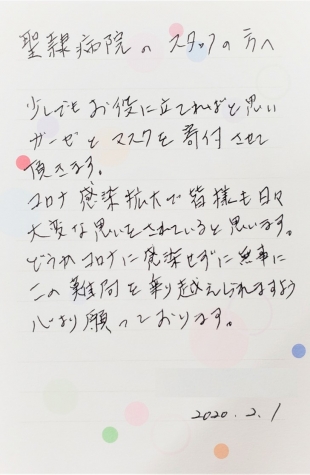 聖隷病院の スタッフの方へ
少しでも お役に立てればと思い
ガーゼと マスクを 寄付させて
頂きます。
コロナ感染拡大で皆様も日々
大変な思いをされていると思います。
どうかコロナに感染せずに無事に
この難局を乗り越えられますよう
心より願っております。
2020.2.1